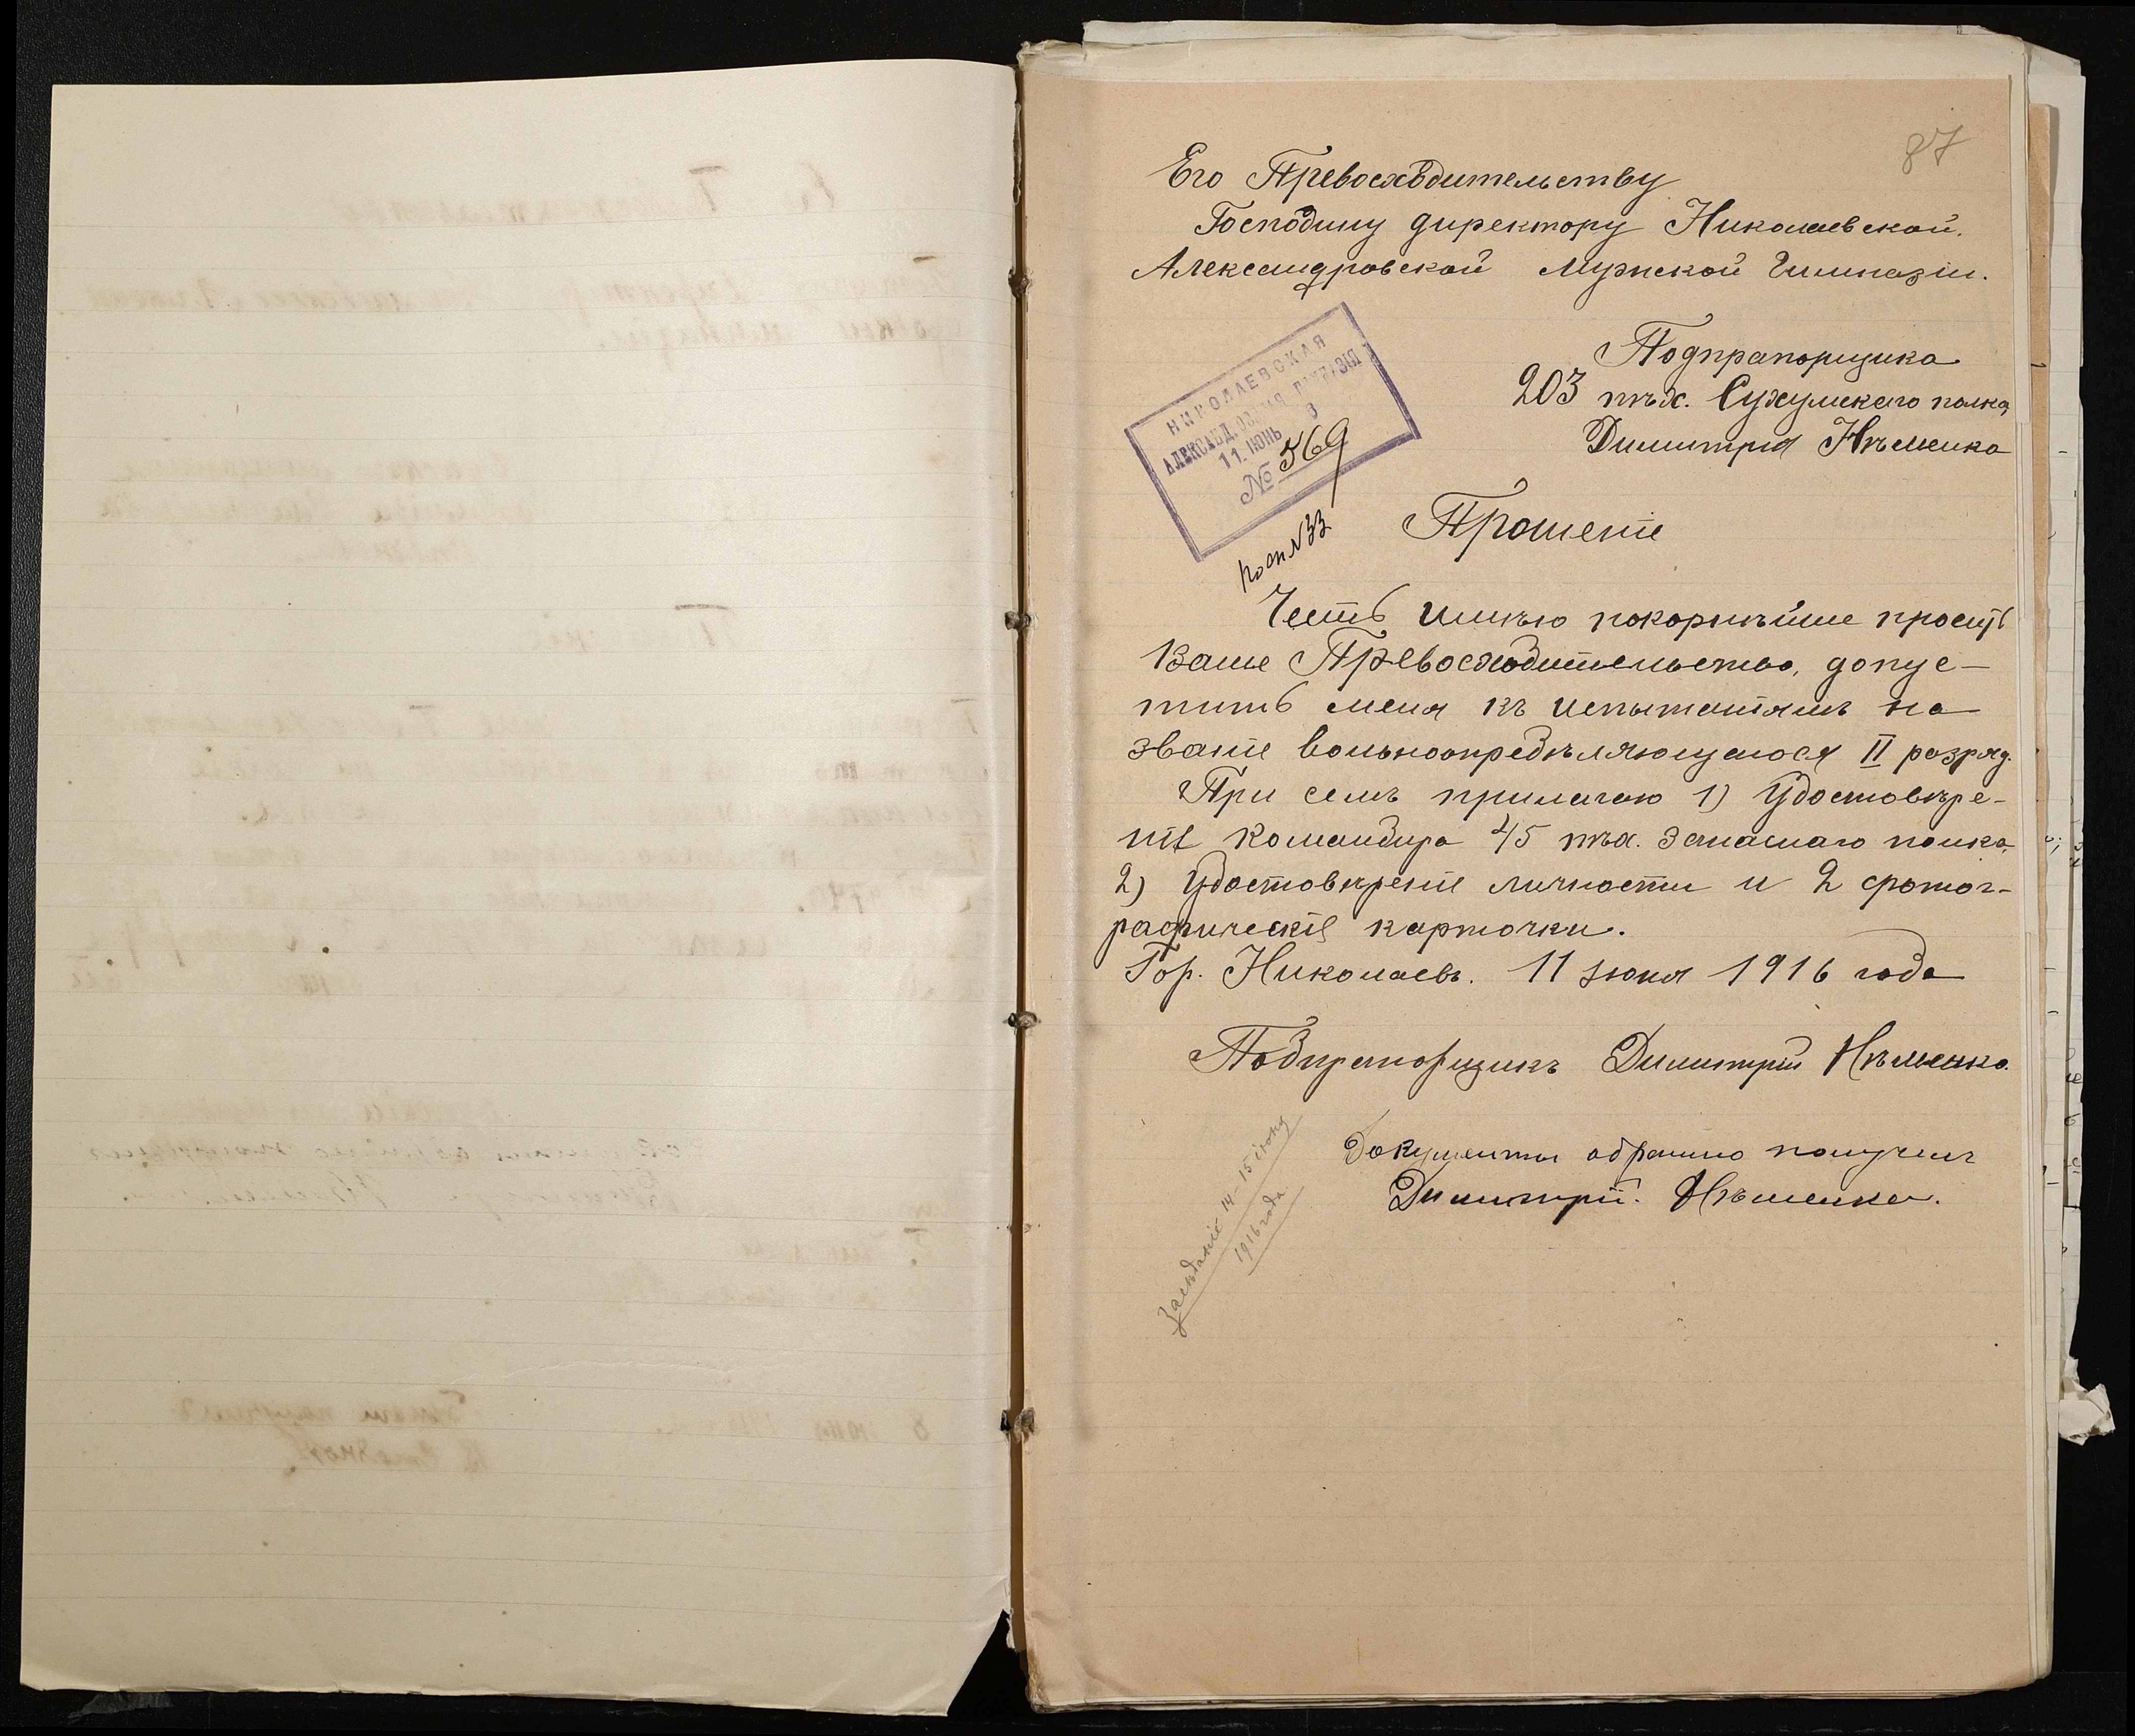 87
Его Превосходительству
Господину директору Николаевской.
Александровской Мужской Гимназіи.
НИКОЛАЕВСКАЯ
АЛЕКСАНД. ГИМНАЗІЯ
11. ІЮНЬ
№ 569
Подпрапорщика
203 пѣх. Сухумскаго полка
Димитрія Нѣменко
Прошеніе
Честь имѣю покорнѣйше просить
Ваше Превосходительство, допус-
тить меня къ испытаніямъ на
званіе вольноопредѣляющагося II разряд.
При семъ прилагаю 1) Удостовѣре-
ніе Командира 45 пѣх. Запаснаго полка,
2) Удостовѣреніе личности и 2 фотог-
рафическія карточки.
Гор. Николаевъ. 11 Іюня 1916 года
Подпрапорщикъ Димитрій Нѣменко.
Документы обратно получилъ
Димитрій. Нѣменко.
Засѣданіе 14-15 іюня
1916 года.